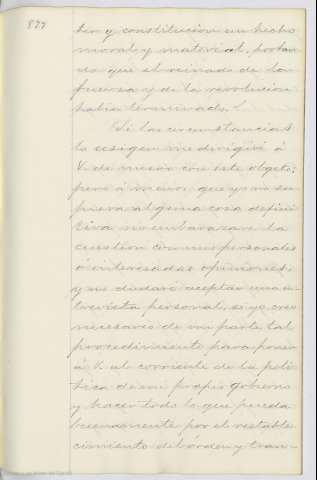 877
ter y constitucion un hecho
moral y material, portan
to que el reinado de la
fuerza y de la revolucion
habia terminado.
Si las circunstancias
lo exigen me dirigiré á
V. de nuevo con este objeto;
pero á menos que yo no su
piera alguna cosa defini
tiva no embarazaré la
cuestion con mis personales
ó interesadas opiniones,
y no dudaré aceptar una en
trevista personal, si yo creo
necesario de mi parte tal
procedimiento para poner
á V. al corriente de la poli
tica de mi propio gobierno
y hacer todo lo que pueda
buenamente por el restable
cimiento del órden y tran-